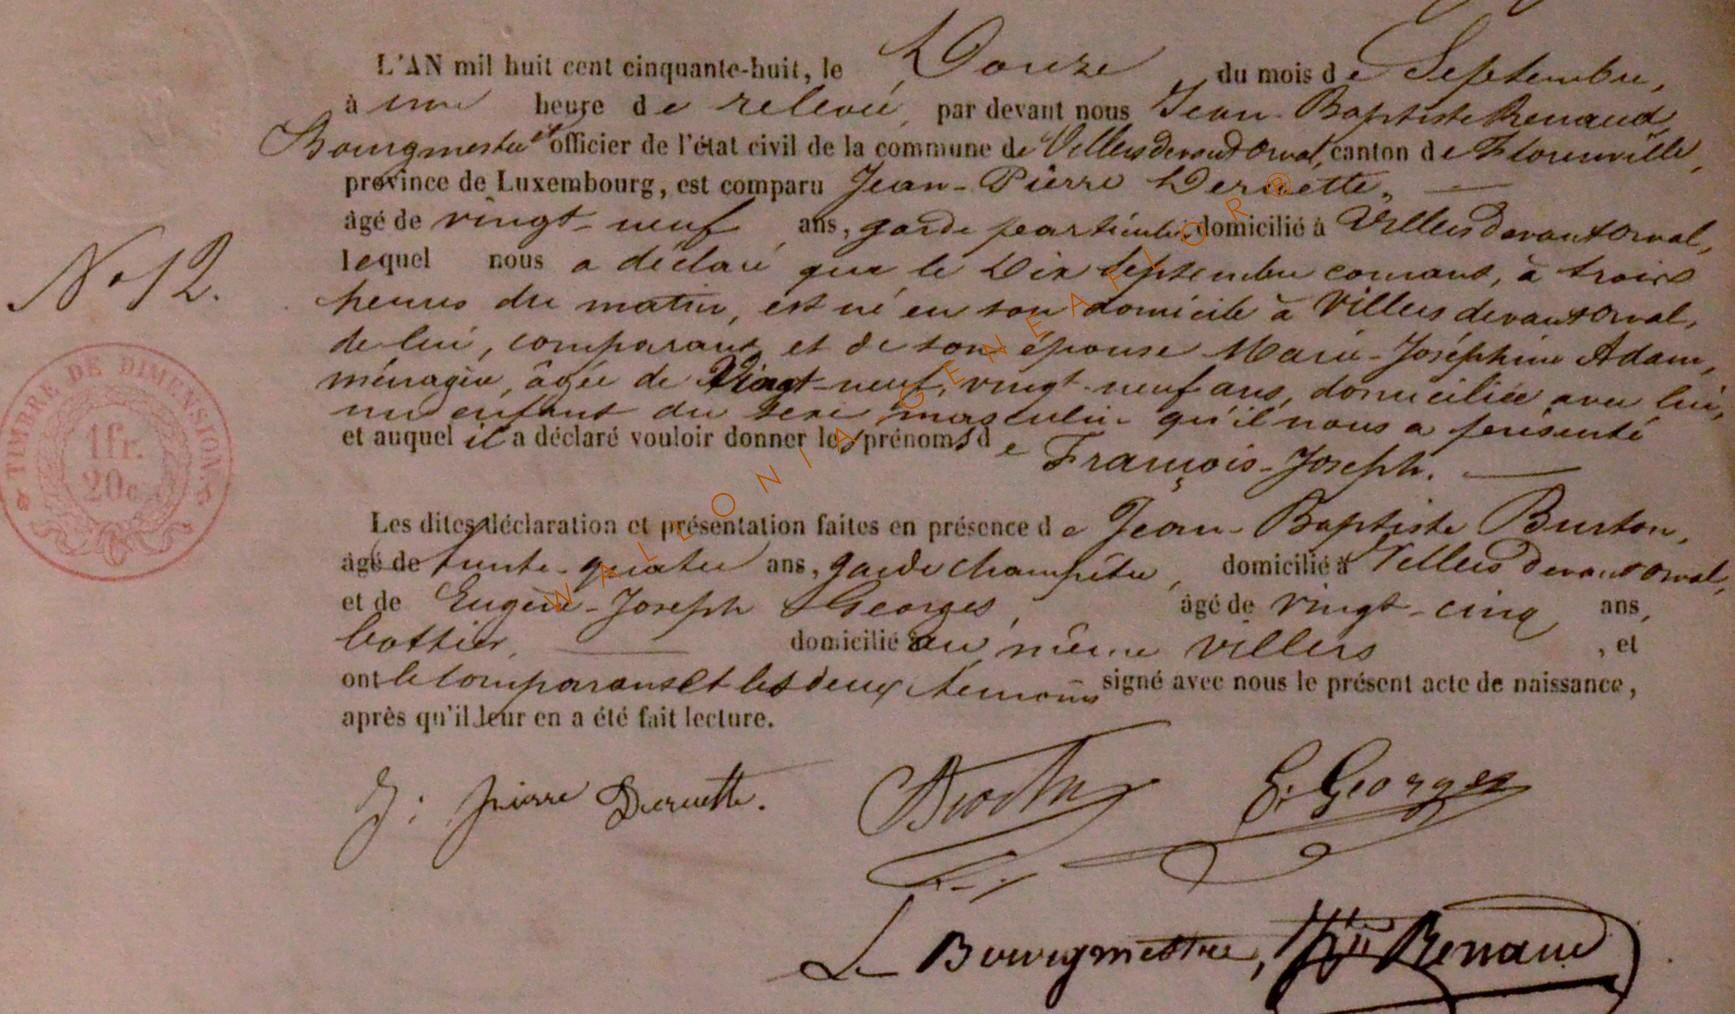 L'AN mil huit cent cinquante-huit, le Douze du mois de Septembre,
à une heure de relevée, par devant nous Jean-Baptiste Renaud,
Bourgmestre et officier de l'état civil de la commune de Villers devant Orval, canton de Florenville,
province de Luxembourg, est comparu Jean-Pierre Deruette,
âgé de vingt-neuf ans, garde particulier domicilié à Villers devant Orval,
lequel nous a déclaré que le Dix Septembre courant, à trois
heures du matin, est né en son domicile à Villers devant Orval,
de lui, comparant et de son épouse Marie-Joséphine Adam,
ménagère, âgée de Vingt-neuf, vingt-neuf ans, domiciliée avec lui,
un enfant du sexe masculin qu'il nous a présenté
et auquel il a déclaré vouloir donner les prénoms de
François-Joseph.
No 12.
TIMBRE DE DIMENSION.
1fr.
20c
Les dites déclaration et présentation faites en présence de Jean-Baptiste Burton,
âgé de trente-quatre ans, garde champêtre, domicilié à Villers devant Orval,
et de Eugène-Joseph Georges, âgé de vingt-cinq ans,
bottier, domicilié au même Villers, et
ont le comparant et les deux témoins signé avec nous le présent acte de naissance,
après qu'il leur en a été fait lecture.
J: pierre Deruette.
E. Georges
Le Bourgmestre, Renaud
WALLONIA GENEAFLOR®